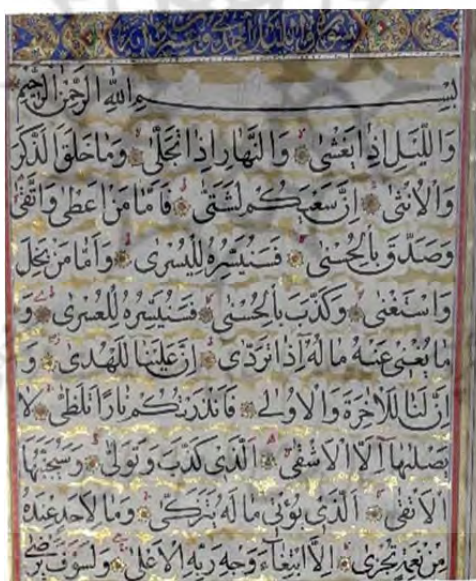 سورة و الليل احدى و عشرون آية
بِسْمِ اللهِ الرَّحْمٰنِ الرَّحِيمِ
وَاللَّيْلِ اِذَا يَغْشٰى وَالنَّهَارِ اِذَا تَجَلّٰى وَمَا خَلَقَ الذَّكَرَ
وَالْاُنْثٰى اِنَّ سَعْيَكُمْ لَشَتّٰى فَاَمَّا مَنْ اَعْطٰى وَاتَّقٰى
وَصَدَّقَ بِالْحُسْنٰى فَسَنُيَسِّرُهُ لِلْيُسْرٰى وَاَمَّا مَنْ بَخِلَ
وَاسْتَغْنٰى وَكَذَّبَ بِالْحُسْنٰى فَسَنُيَسِّرُهُ لِلْعُسْرٰى وَ
مَا يُغْنٰى عَنْهُ مَا لُهُ اِذَا تَرَدّٰى اِنَّ عَلَيْنَا لَلْهُدٰى وَ
اِنَّ لَنَا لَلْاٰخِرَةَ وَالْاُولٰى فَاَنْذَرْتُكُمْ نَارًا تَلَظّٰى لَا
يَصْلٰيهَا اِلَّا الْاَشْقٰى اَلَّذٰى كَذَّبَ وَتَوَلّٰى وَسَيُجَنَّبُهَا
الْاَتْقٰى اَلَّذٰى يُؤْتٰى مَا لَهُ يَتَزَكّٰى وَمَا لِاَحَدٍ عِنْدَهُ
مِنْ نِعْمَةٍ تُجْزٰى اِلَّا ابْتِغَآءَ وَجْهِ رَبِّهِ الْاَعْلٰى وَلَسَوْفَ يَرْضٰى